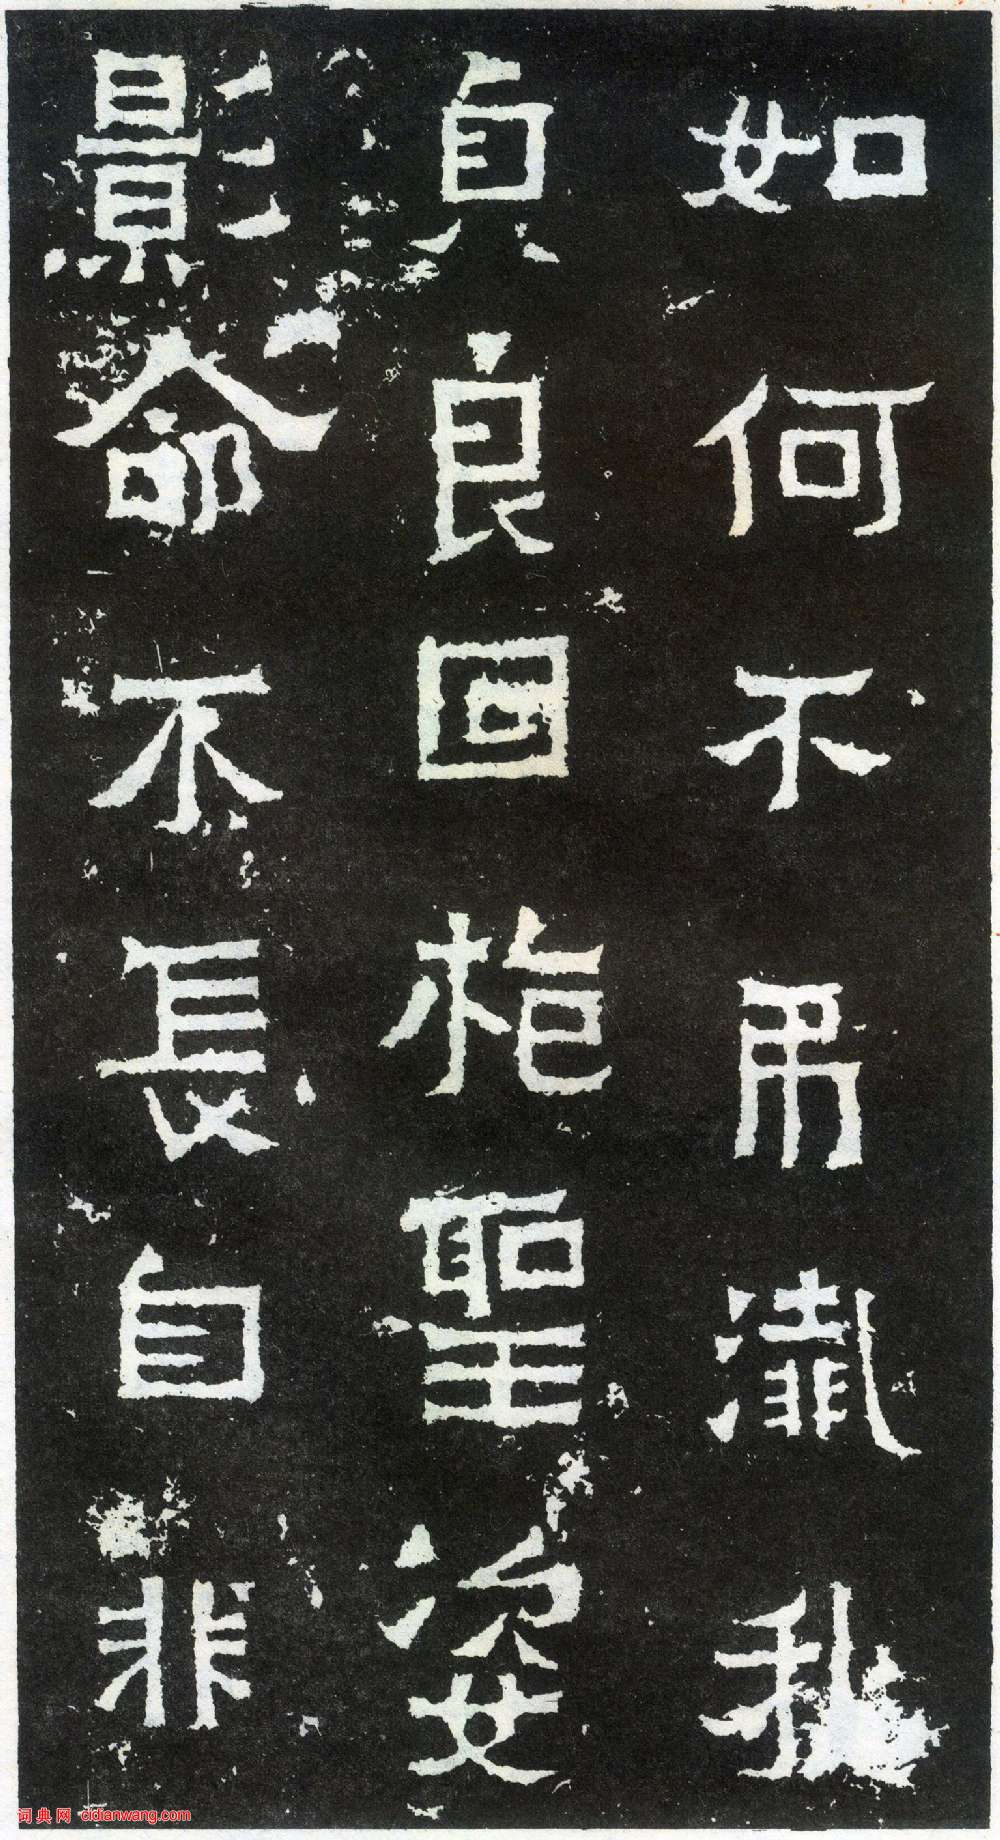 如何不弔瀸我
貞良回枹聖姿
影命不長自非
词典网 cidianwang.com